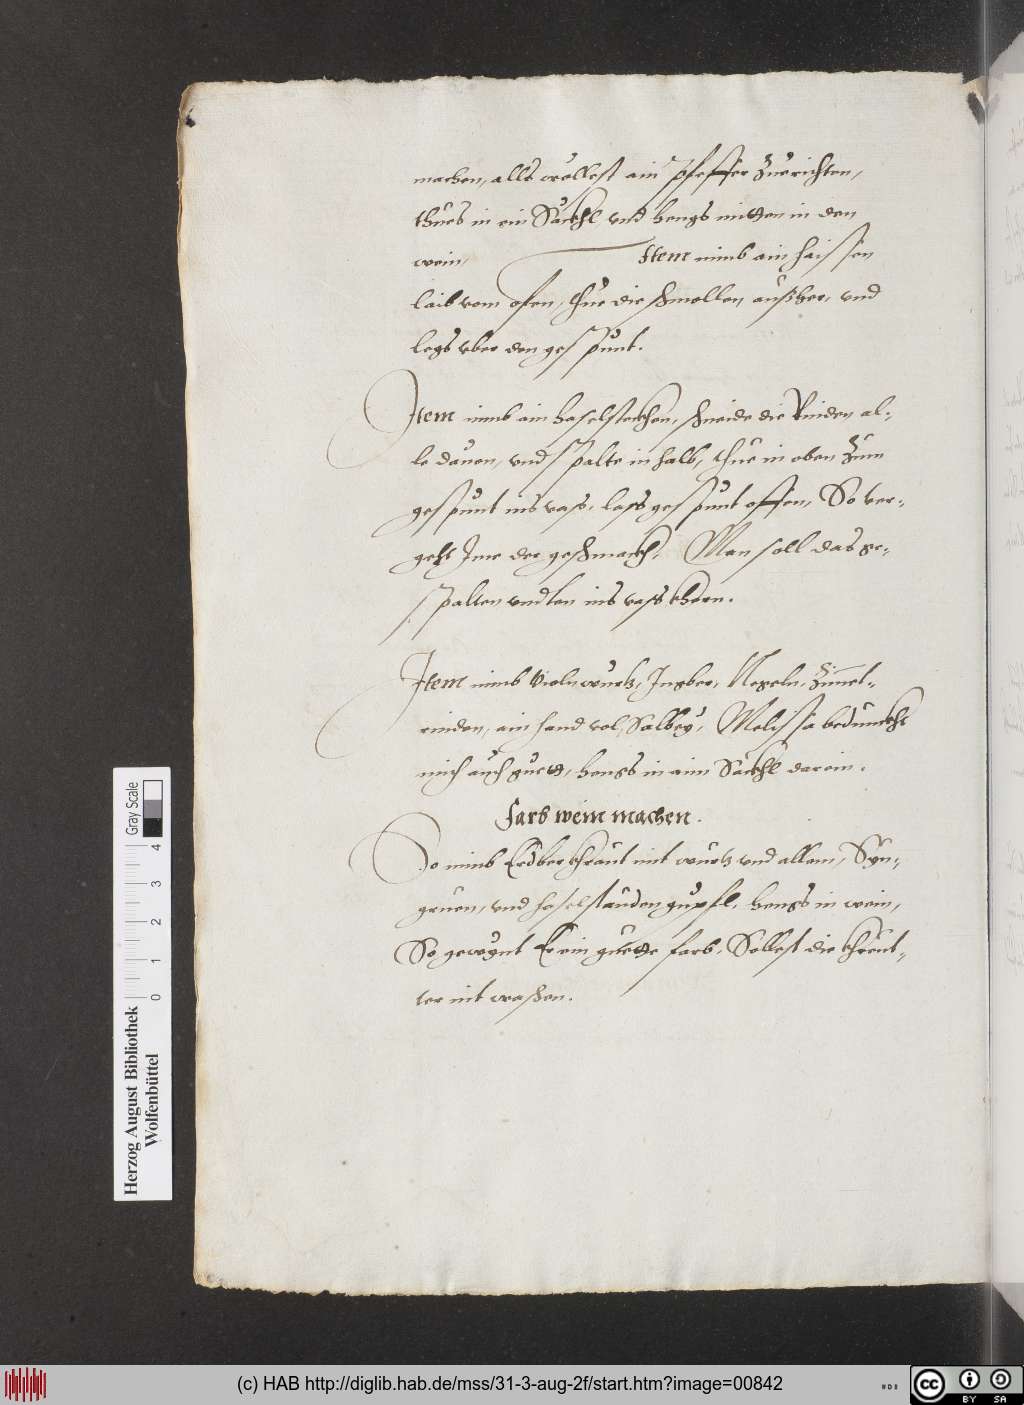 machen, alls woltest ain pfeffer zuerichten,
thues in ein Säckhl vnd hengs mitten in den
wein, Item nimb ain haissen
laib vom ofen, thue die schmollen außher, vnd
legs vber den gespunt.
Item nimb ain haselsteckhen, schneide die Rinden al-
le dauon, vnd spalte in halb, thue in oben zum
gespunt ins vass, lass gespunt offen, So ver-
geht Ime der geschmackh. Man soll das ge-
spalten vndten ins vass khern.
Item nimb Violnwurtz, Ingber, Negeln, Zimmet-
rinden, ain hand vol Salbey, Melissa bedunckht
mich auch guett, hengs in aim Säckhl darein.
Farb wein machen.
So nimb Erdberkhraut mit wurtz vnd allem, Syn-
gruen, vnd haselstauden gupfl, hengs in wein,
So gewynt Er ein guette farb, Sollest die khreut-
ter nit waschen.
Gray Scale
0 1 2 3 4
Herzog August Bibliothek
Wolfenbüttel
(c) HAB http://diglib.hab.de/mss/31-3-aug-2f/start.htm?image=00842
cc BY SA